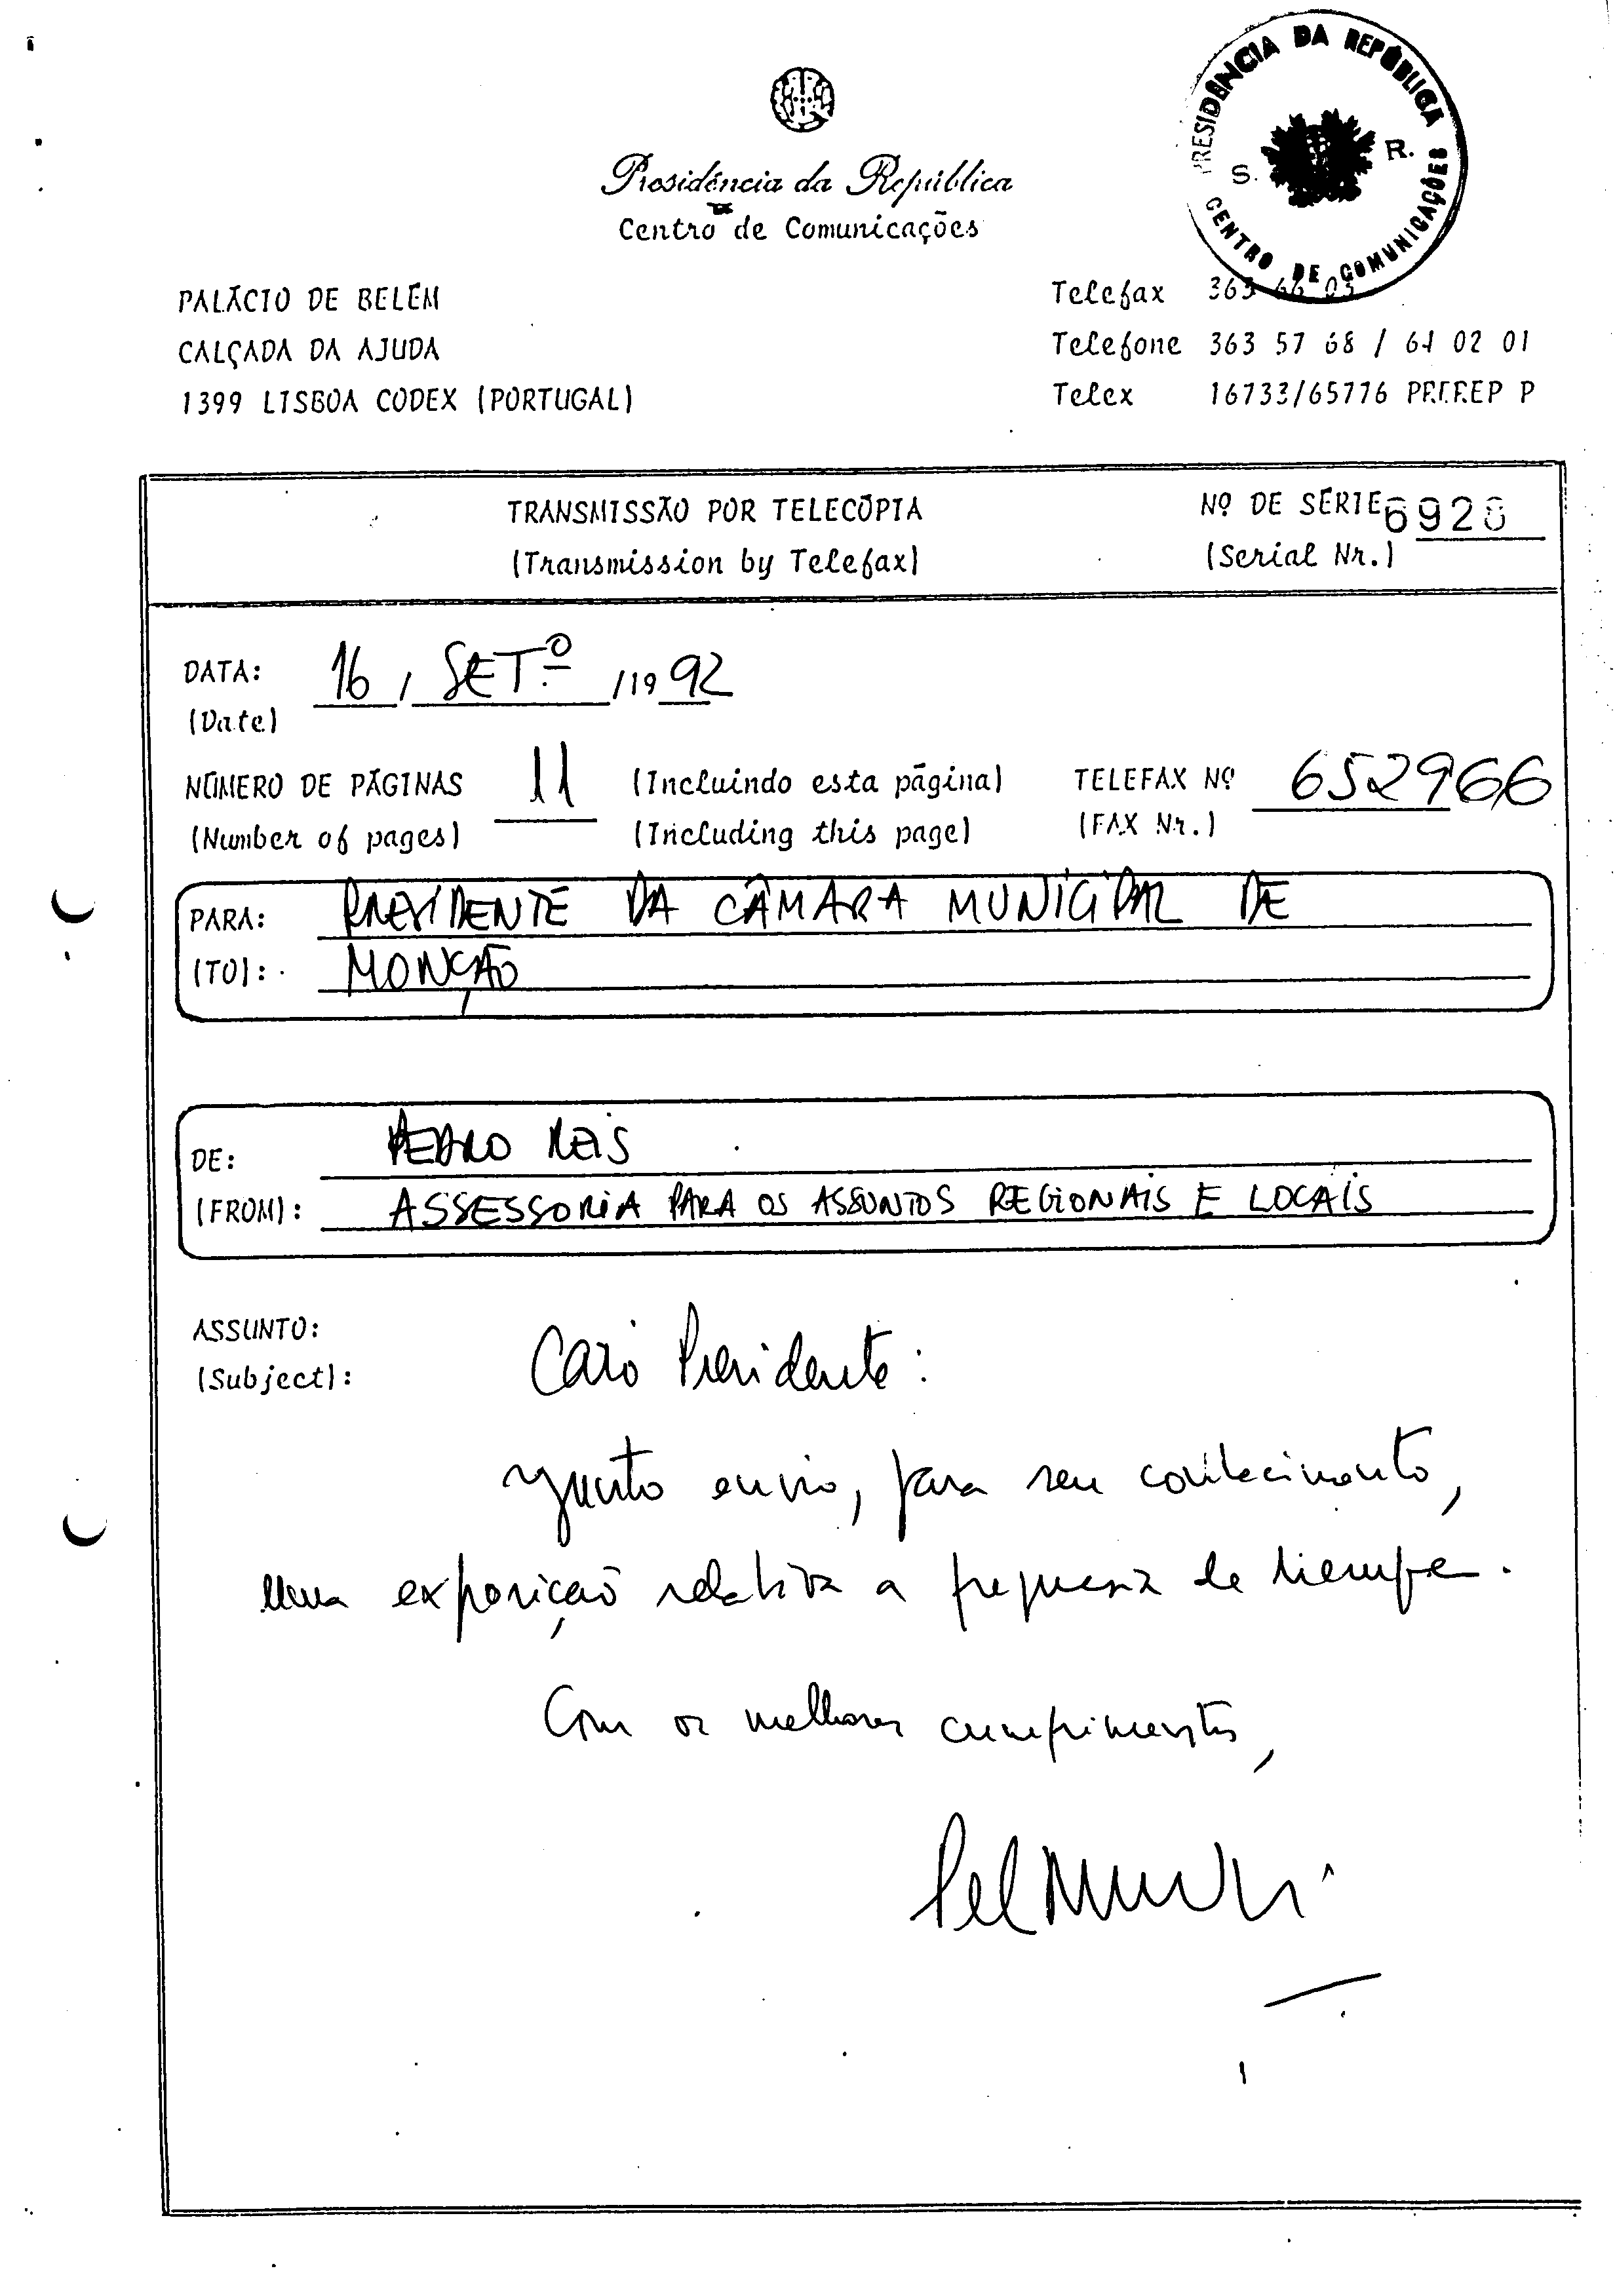 Presidência da República
Centro de Comunicações
PRESIDÊNCIA DA REPÚBLICA
S. R.
CENTRO DE COMUNICAÇÕES
PALÁCIO DE BELÉM
CALÇADA DA AJUDA
1399 LISBOA CODEX (PORTUGAL)
Telefax 363 66 03
Telefone 363 57 68 / 61 02 01
Telex 16733/65776 P
TRANSMISSÃO POR TELECÓPIA
(Transmission by Telefax)
Nº DE SÉRIE 6928
(Serial Nr.)
DATA: 16 / SETº /19 92
(Date)
NÚMERO DE PÁGINAS 11 (Incluindo esta página) TELEFAX Nº 652966
(Number of pages) (Including this page) (FAX Nr.)
PARA: PRESIDENTE DA CÂMARA MUNICIPAL DE
(TO): MONÇÃO
DE: PEDRO REIS
(FROM): ASSESSORIA PARA OS ASSUNTOS REGIONAIS E LOCAIS
ASSUNTO:
(Subject):
Caro Presidente:
Junto envio, para seu conhecimento,
uma exposição relativa a freguesia de
Com os melhores cumprimentos,